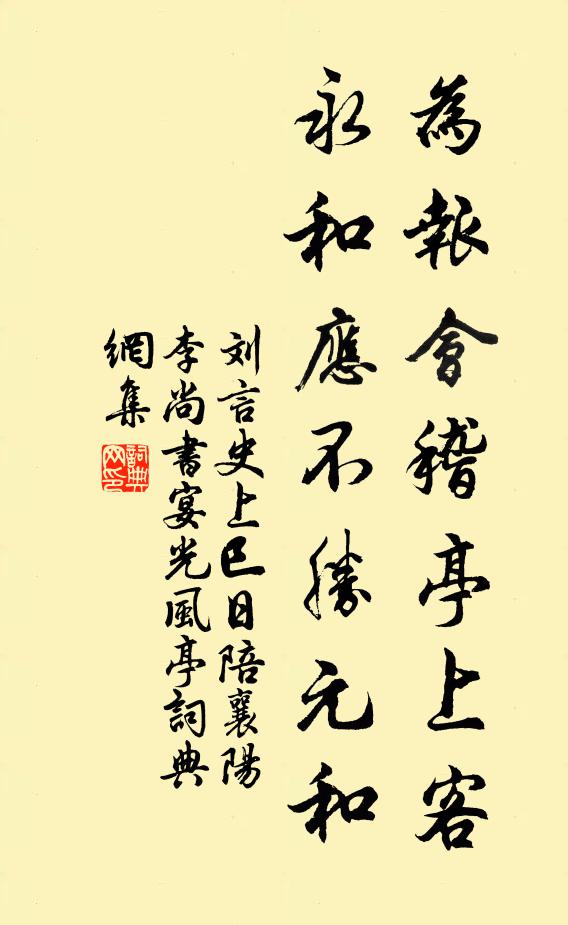 為報會稽亭上客
永和應不勝元和
刘言史上巳日陪襄陽
李尚書宴光風亭詞典
網集
詞典
网印